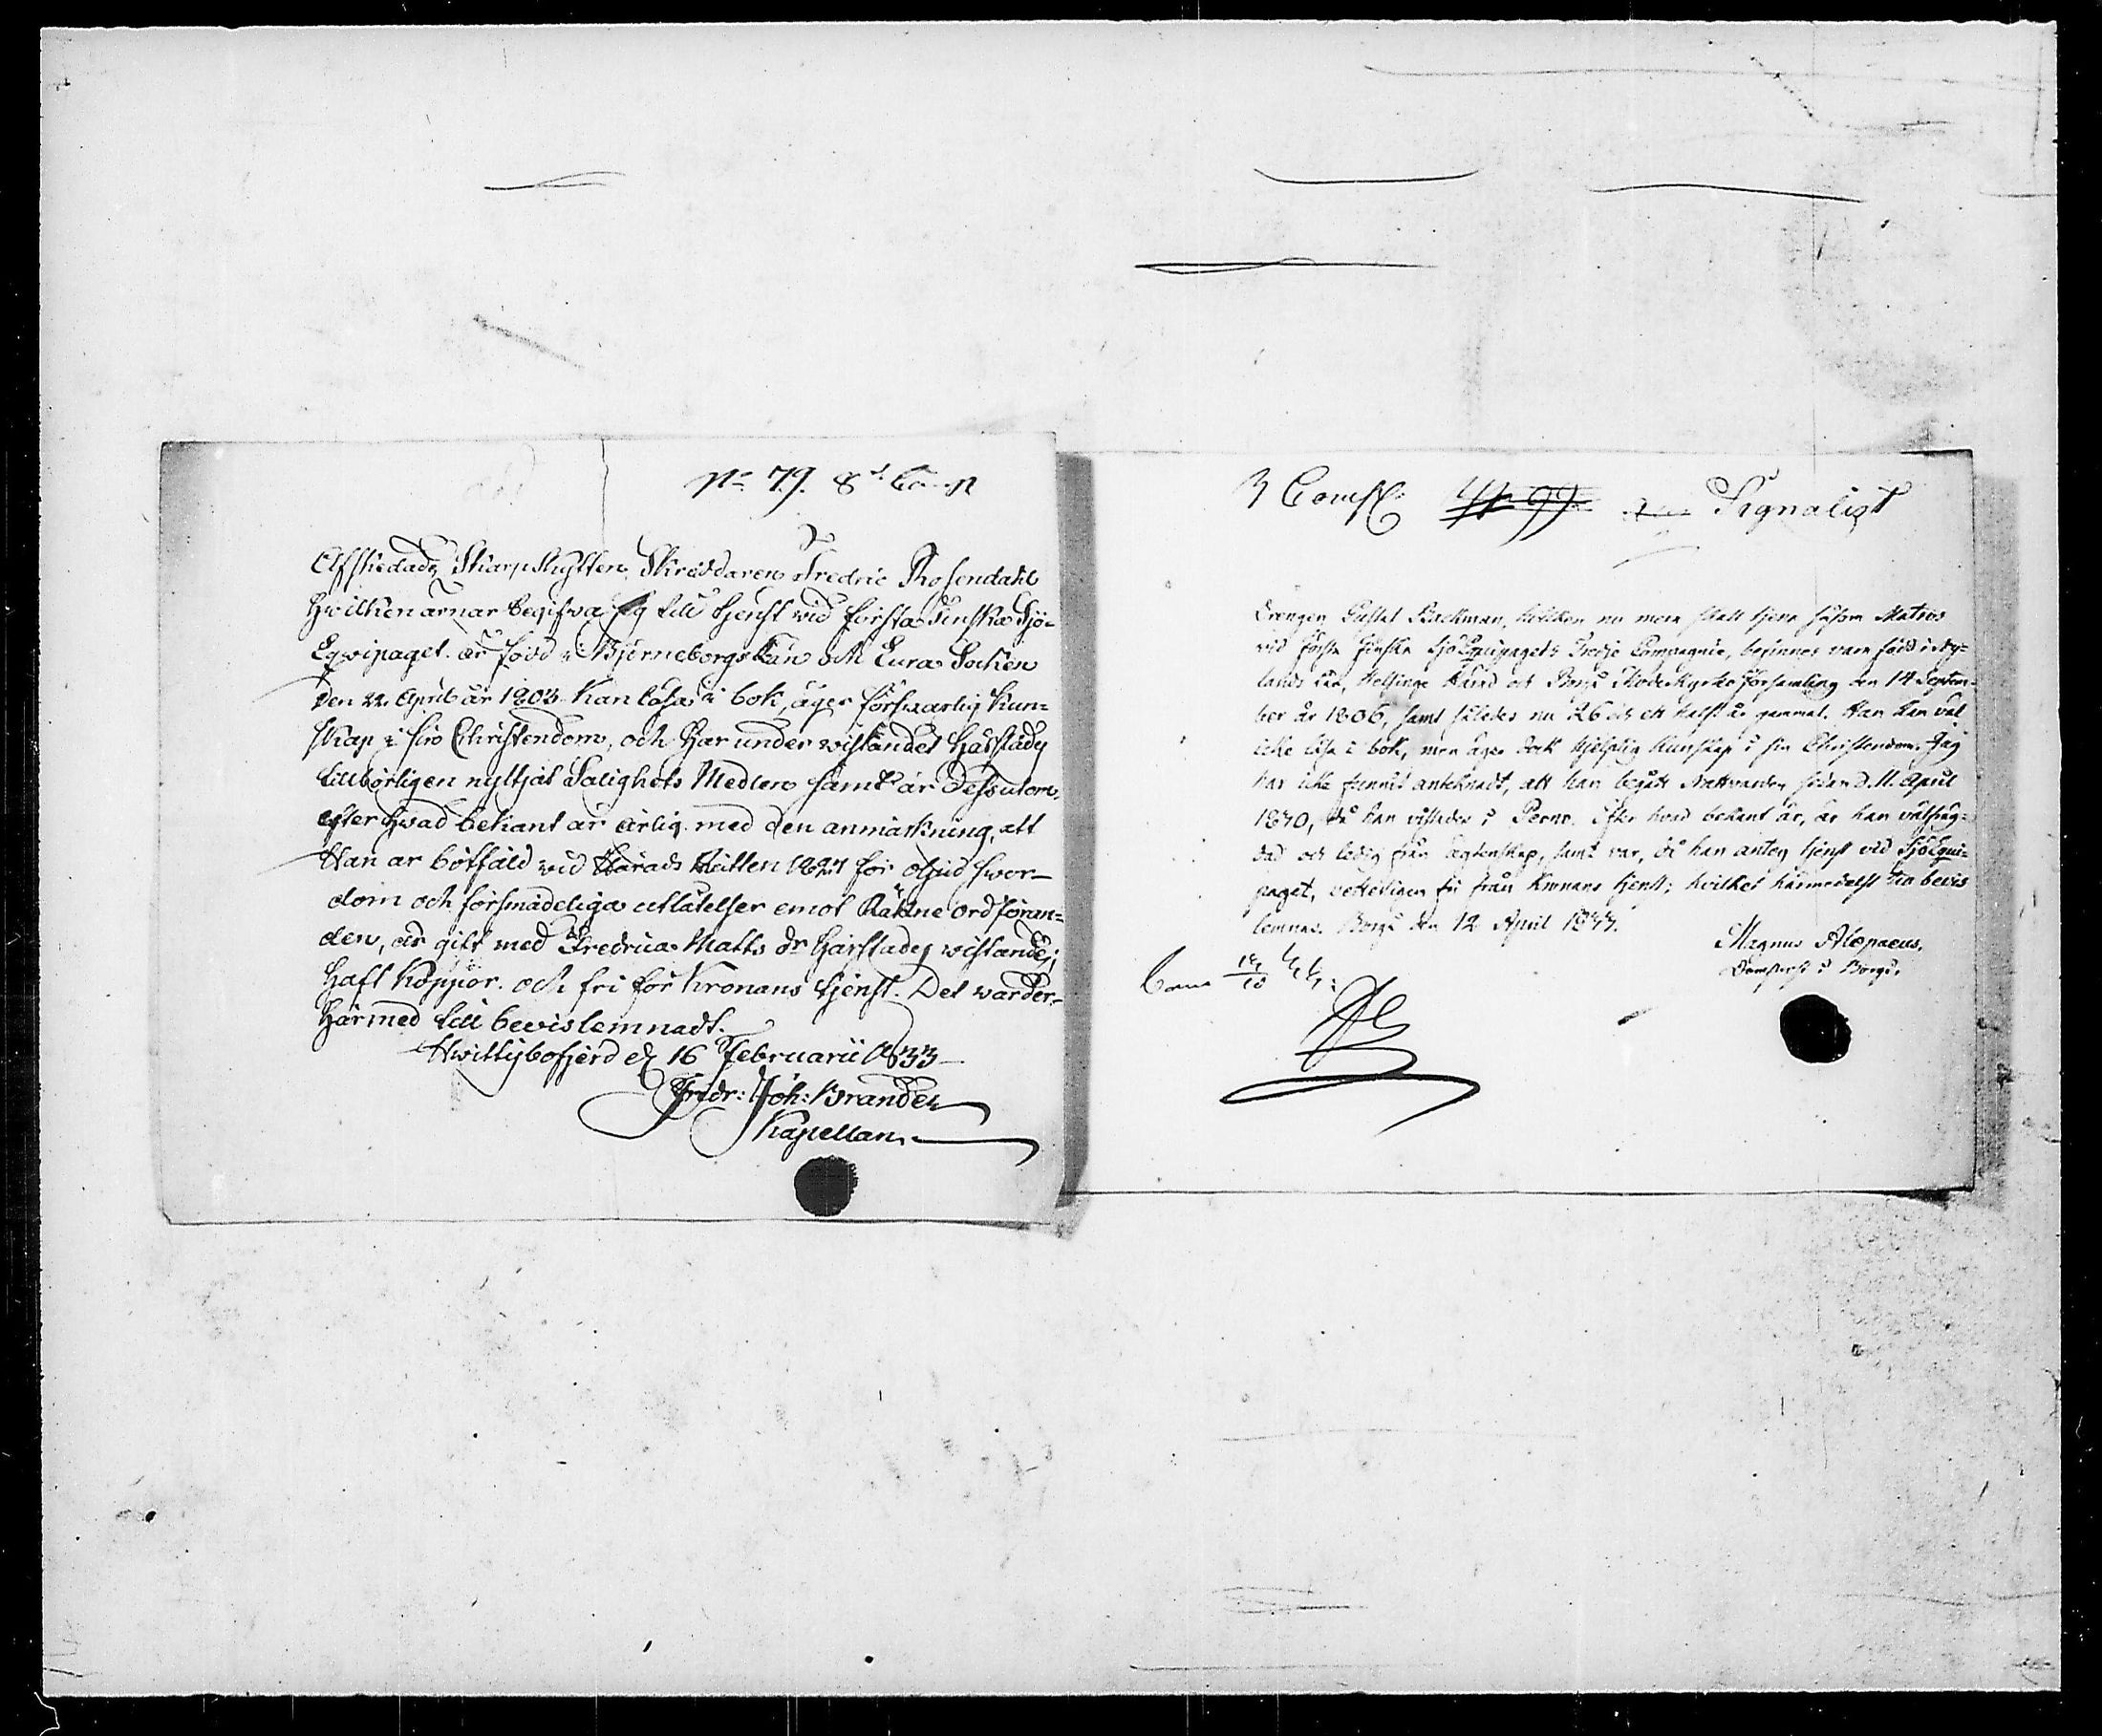 No 79. 8d Comp
Afskedade Skarpskytten, Skräddaren Fredric Rosendahl
hwilken ärnar begifwa sig till tjenst wid första Finska Sjö-
Eqwipaget. är född i Björneborgs Län och Eura Socken
den 22. April år 1803. Kan läsa i bok, äger förswarlig Kun-
skap i sin Christendom, och har under wistandet härstädes
tillbörligen nyttjat Salighets Medlen samt är dessutom,
efter hwad bekant är ärlig. med den anmärkning, att
Han är bötfäld wid Härads Rätten 1827 för oljud swor-
dom och försmädeliga utlåtelser emot Rättne ordföran-
den, är gift med Fredrica Matts dr härstädes wistande;
haft Koppor. och fri för Kronans tjenst. Det warder
härmed till bevis lemnadt.
Hwittisbofjerd d. 16 Februarii 1833
Fredr: Joh: Brander
Kapellan.
3 Comp: No 99 Signalist
Drengen Gustaf Backman, hvilken nu mera skall tjena såsom Matros
vid Första Finska SjöEquipagets Tredje Compagnie, befinnes vara född i Ny-
lands Län, Helsinge Härad och Borgå Moderkyrko församling den 14 Septem-
ber år 1806, samt således nu 26 och ett halft år gammal. Han kan väl
icke läsa i bok, men äger dock hjelplig kunskap i sin Christendom. Jag
har icke funnit antecknadt, att han begått Nattvarden sedan d. 11. April
1830, då han vistades i Perno. Efter hvad bekant är, är han välfräg-
dad och ledig från ägtenskap, samt var, då han antog tjenst vid SjöEqui-
paget, vetterligen fri från Kronans tjenst; hvilket härmedelst till bevis
lemnas. Borgå den 12 April 1833.
Magnus Alopaeus,
Domprost i Borgå.